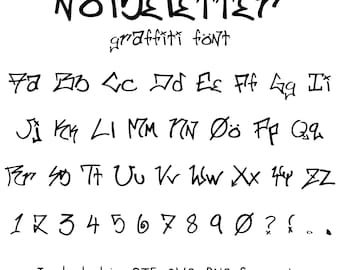 NOIDELETTER
graffiti font
Aa Bb Cc Dd Ee Ff Gg Ii
Jj Kk Ll Mm Nn Öö Pp Qq
Rr Ss Tt Uu Vv Ww Xx Yy Zz
1 2 3 4 5 6 7 8 9 0 ? ! . .